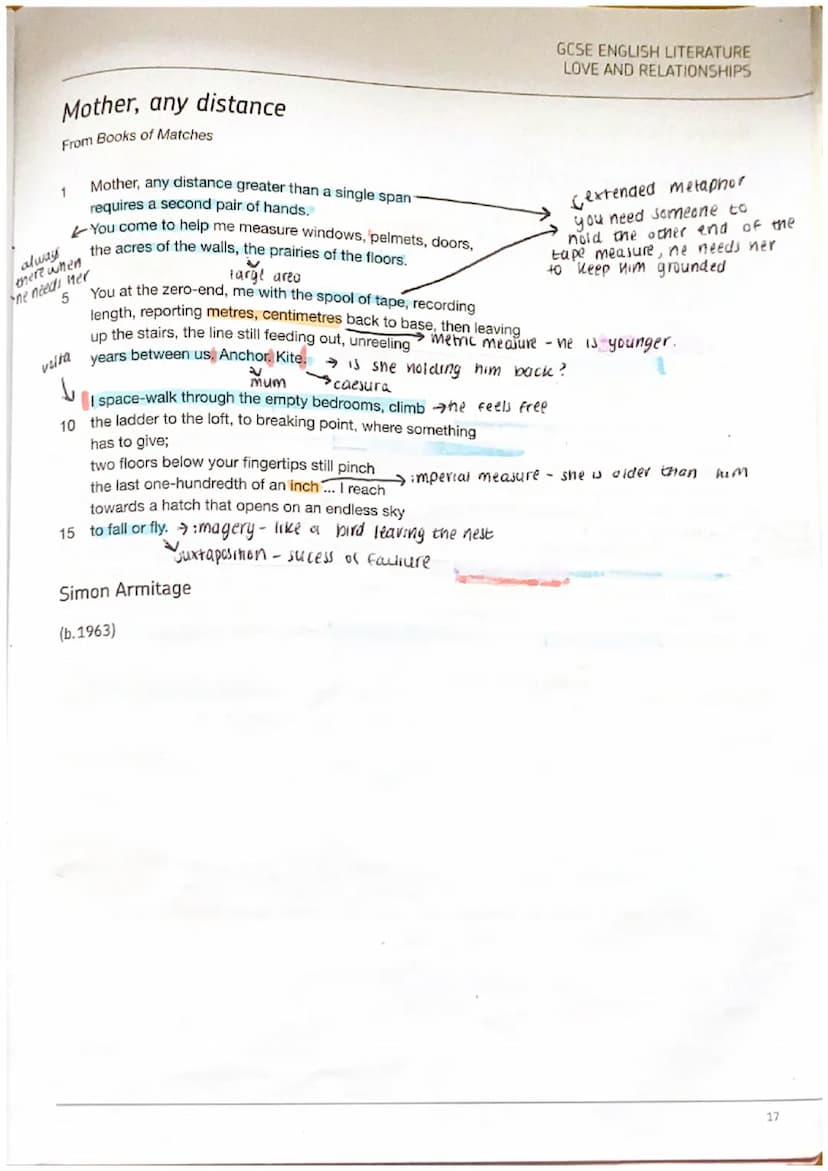 GCSE ENGLISH LITERATURE
LOVE AND RELATIONSHIPS
Mother, any distance
From Books of Matches
1 Mother, any distance greater than a single span
requires a second pair of hands.
You come to help me measure windows, pelmets, doors,
the acres of the walls, the prairies of the floors.
extended metaphor
you need someone to
hold the other end of the
tape measure, he needs her
to keep him grounded
always
there when
he needs her
large area
5 You at the zero-end, me with the spool of tape, recording
length, reporting metres, centimetres back to base, then leaving
up the stairs, the line still feeding out, unreeling
metric measure - he is younger.
years between us. Anchor. Kite. → is she holding him back?
volta
mum
caesura
I space-walk through the empty bedrooms, climb → he feels free
10 the ladder to the loft, to breaking point, where something
has to give;
two floors below your fingertips still pinch
the last one-hundredth of an inch ... I reach
imperial measure - she is older than him
towards a hatch that opens on an endless sky
15 to fall or fly. → imagery - like a bird leaving the nest
juxtaposition - sucess or failiure
Simon Armitage
(b.1963)
17